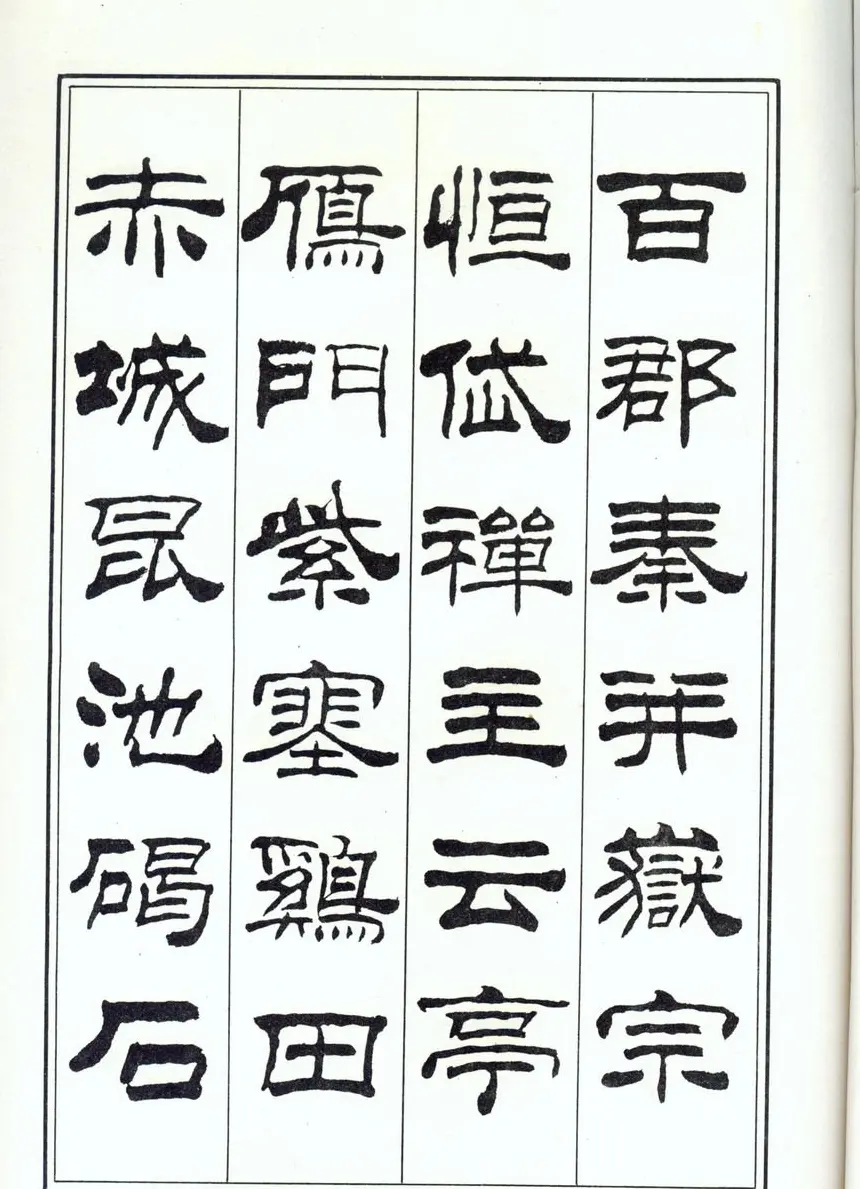 百郡秦并嶽宗
恒岱禪主云亭
鴈門紫塞鷄田
赤城昆池碣石